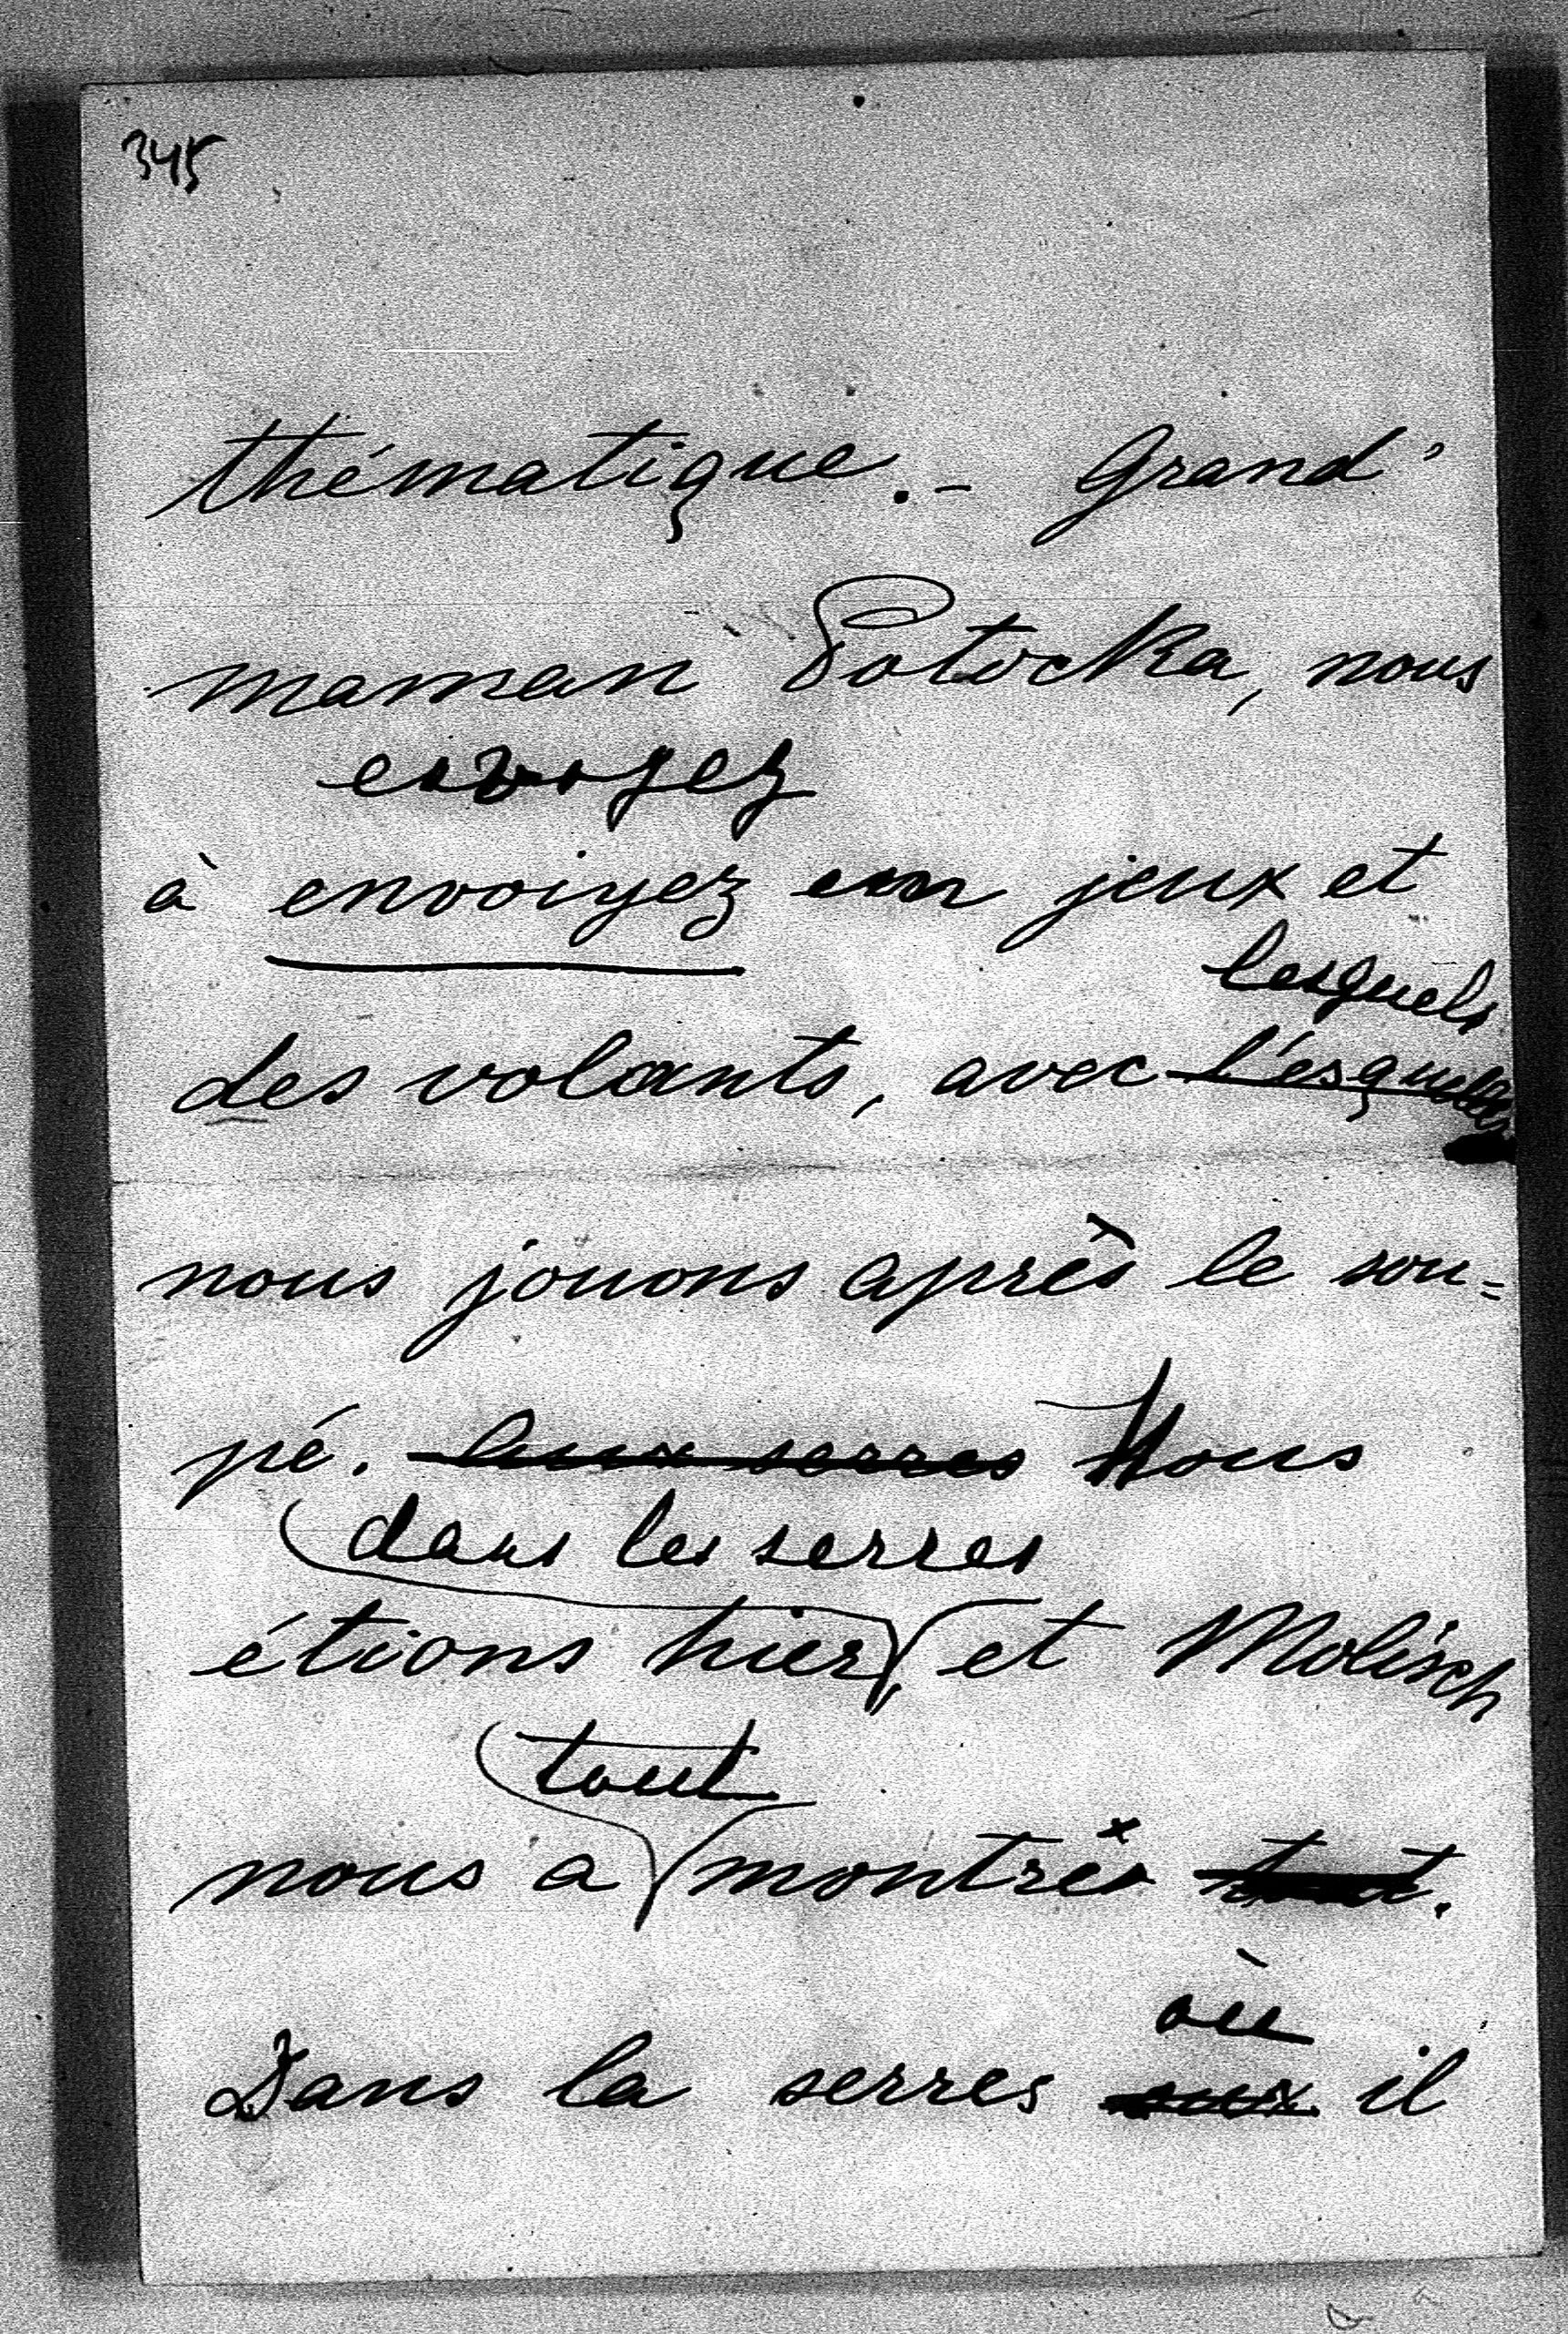 345
thématique. - Grand'
maman Potocka, nous
envoyez
à envoiyez un jeux et
lesquels
des volants, avec l'esquelles
nous jouons après le sou=
pé. Aux serres Nous
dans les serres
étions hier, et Molisch
tout
nous a montrés tout.
où
Dans la serres aux il